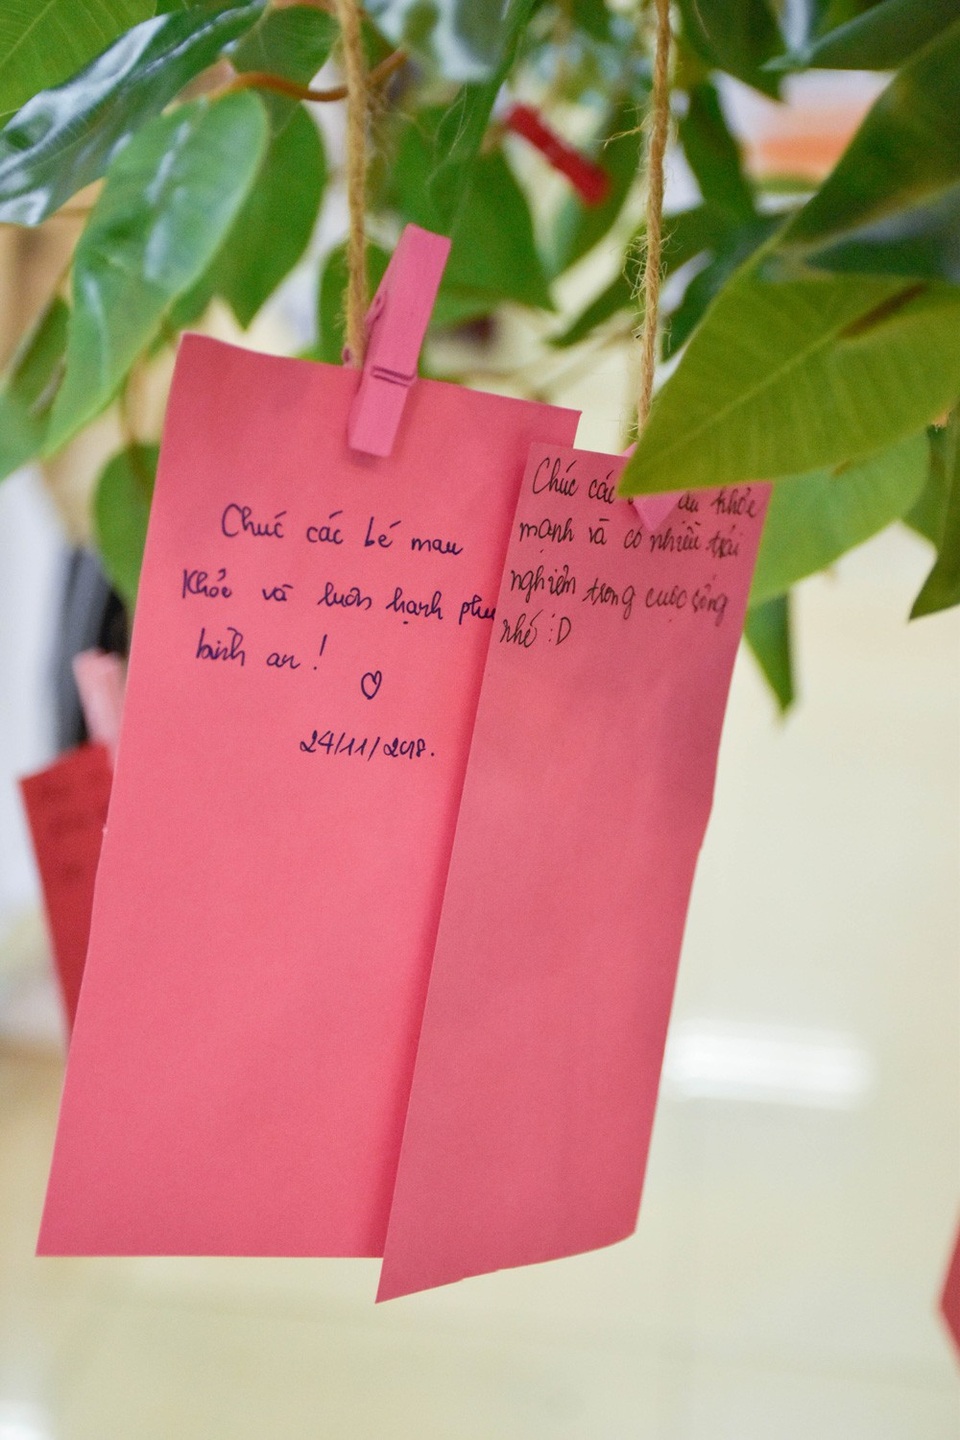 Chúc các bé mau
Khỏe và luôn hạnh
bình an!
24/11/2018.
Chúc các khỏe
mạnh và có nhiều trải
nghiệm trong cuộc sống
nhé :D